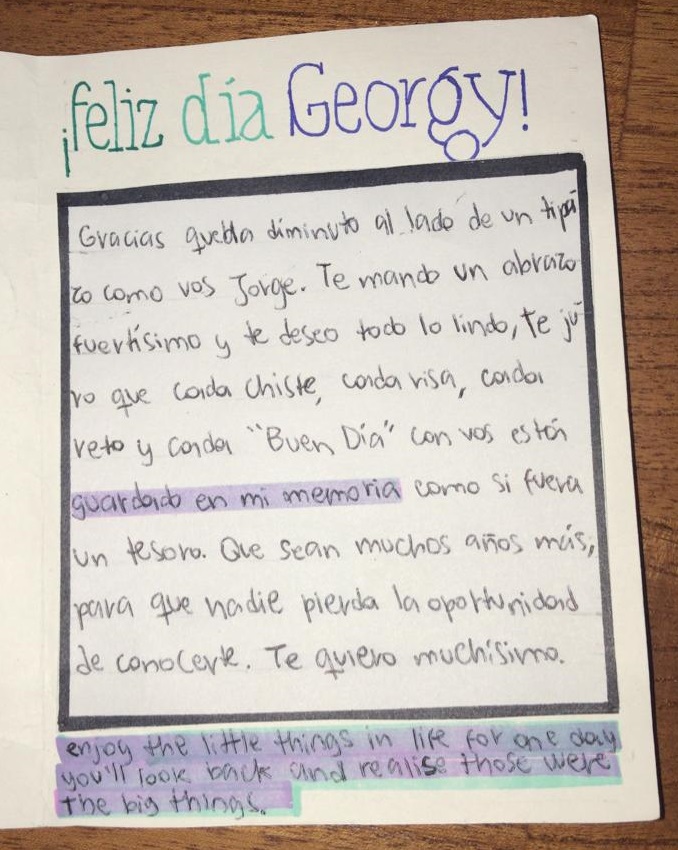 ¡feliz día Georgy!
Gracias queda diminuto al lado de un tipa
zo como vos Jorge. Te mando un abrazo
fuertísimo y te deseo todo lo lindo, te ju
ro que cada chiste, cada risa, cada
reto y cada "Buen Día" con vos están
guardado en mi memoria como si fuera
un tesoro. Que sean muchos años más,
para que nadie pierda la oportunidad
de conocerte. Te quiero muchísimo.
enjoy the little things in life for one day
you'll look back and realise those were
the big things.